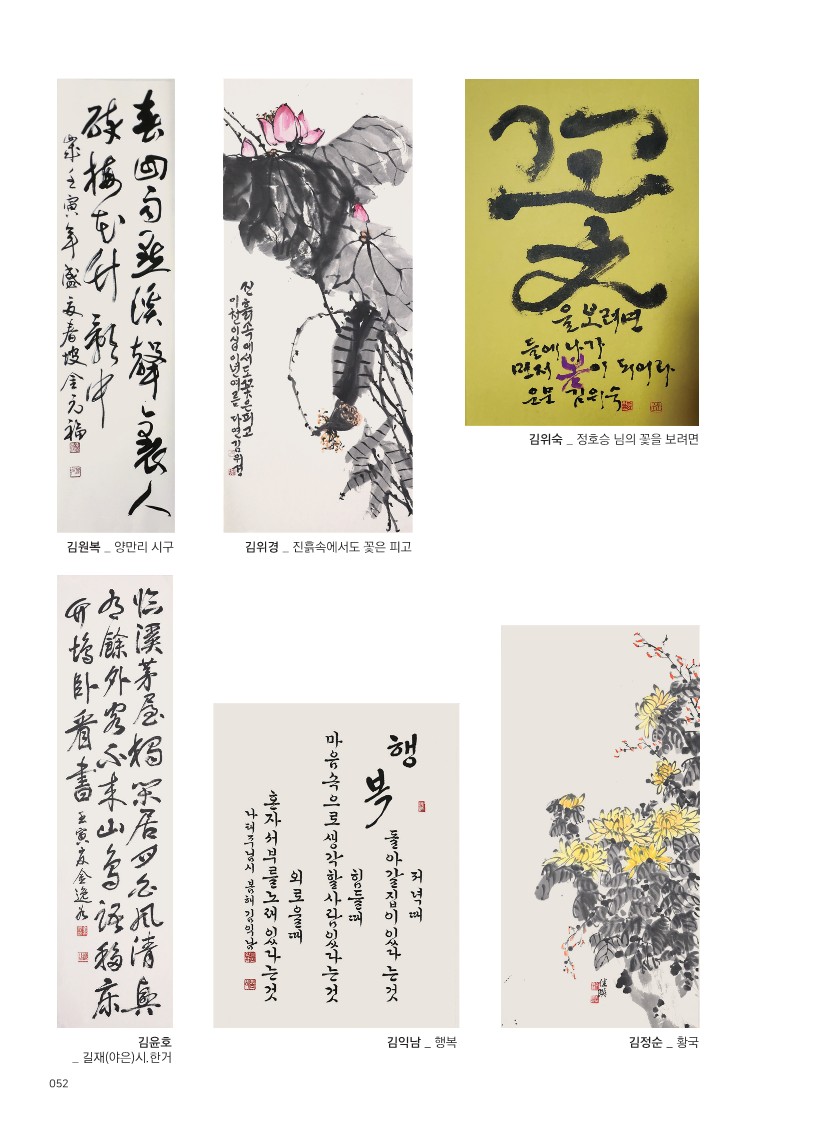 春回雨點溪聲裏人
醉梅花竹影中
歲壬寅年盛夏春坡金元福
김원복 _ 양만리 시구
진흙속에서도꽃은피고
이천이십이년여름 다연김위경
김위경 _ 진흙속에서도 꽃은 피고
꽃
을보려면
들에나가
먼저 봄이 되어라
김위숙
김위숙 _ 정호승 님의 꽃을 보려면
臨溪茅屋獨閑居月白風清興
有餘外客不來山鳥語移床
竹塢臥看書 壬寅夏金
김윤호
_ 길재(야은)시.한거
행복
저녁때
돌아갈집이 있다는것
힘들때
마음속으로 생각할사람있다는것
외로울때
혼자서부를노래 있다는것
나태주님시 봄해 김익남
김익남 _ 행복
김정순 _ 황국
052